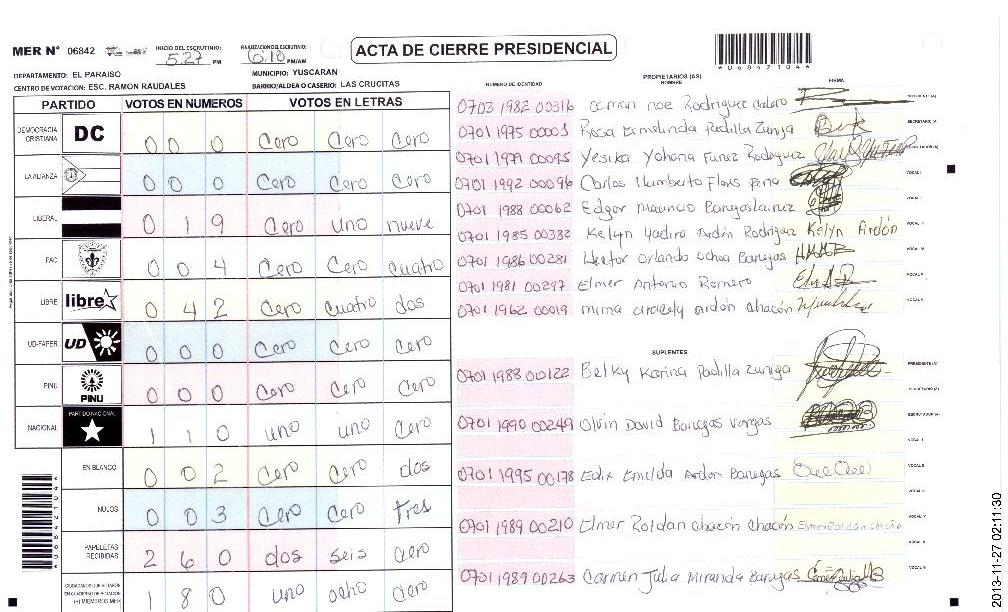 MER N° 06842 INICIO DEL ESCRUTINIO: 5:27 PM FINALIZACION DEL ESCRUTINIO: 6:10 PM/AM
ACTA DE CIERRE PRESIDENCIAL
*068427104*
DEPARTAMENTO: EL PARAÍSO MUNICIPIO: YUSCARAN
CENTRO DE VOTACION: ESC. RAMON RAUDALES BARRIO/ALDEA O CASERIO: LAS CRUCITAS
PARTIDO VOTOS EN NUMEROS VOTOS EN LETRAS
DEMOCRACIA CRISTIANA DC 0 0 0 Cero Cero Cero
LA ALIANZA 0 0 0 Cero Cero Cero
LIBERAL 0 1 9 Cero uno nueve
PAC 0 0 4 Cero Cero cuatro
LIBRE libre 0 4 2 Cero Cuatro dos
UD-FAPER UD 0 0 0 Cero Cero Cero
PINU PINU 0 0 0 Cero Cero Cero
NACIONAL PARTIDO NACIONAL 1 1 0 uno uno Cero
EN BLANCO 0 0 2 Cero Cero dos
NULOS 0 0 3 Cero Cero tres
PAPELETAS RECIBIDAS 2 6 0 dos seis cero
CIUDADANOS QUE VOTARON EN CUADERNO DE VOTACION (+) MIEMBROS MER 1 8 0 uno ocho Cero
NUMERO DE IDENTIDAD PROPIETARIOS (AS) NOMBRE FIRMA
0703 1982 00316 noe Rodriguez PRESIDENTE (A)
0701 1975 00003 Rosa Ermelinda Padilla Zuniga SECRETARIO (A)
0701 1979 00095 Yesika Yohana Funez Rodriguez ESCRUTADOR (A)
0701 1992 00096 Carlos Humberto Flores VOCAL I
0701 1988 00062 Edgar Mauricio
0701 1985 00382 Kelyn Yadira Ardón Rodriguez Kelyn Ardón
0701 1986 00281 Hector Orlando Ochoa Banegas
0701 1981 00297 Elmer Antonio Romero
0701 1962 00019 mirna aracely ardón chacón
SUPLENTES
0701 1988 00122 Belky Karina Padilla Zuniga PRESIDENTE (A)
SECRETARIO (A)
0701 1990 00249 Olvin David Banegas Vargas ESCRUTADOR (A)
VOCAL I
0701 1995 00178 Edix Emelda Ardon Banegas VOCAL II
0701 1989 00210 Elmer Roldan chacón chacón Elmer Roldan chacón
0701 1989 00263 Carmen Julia Miranda Banegas
2013-11-27 02:11:30